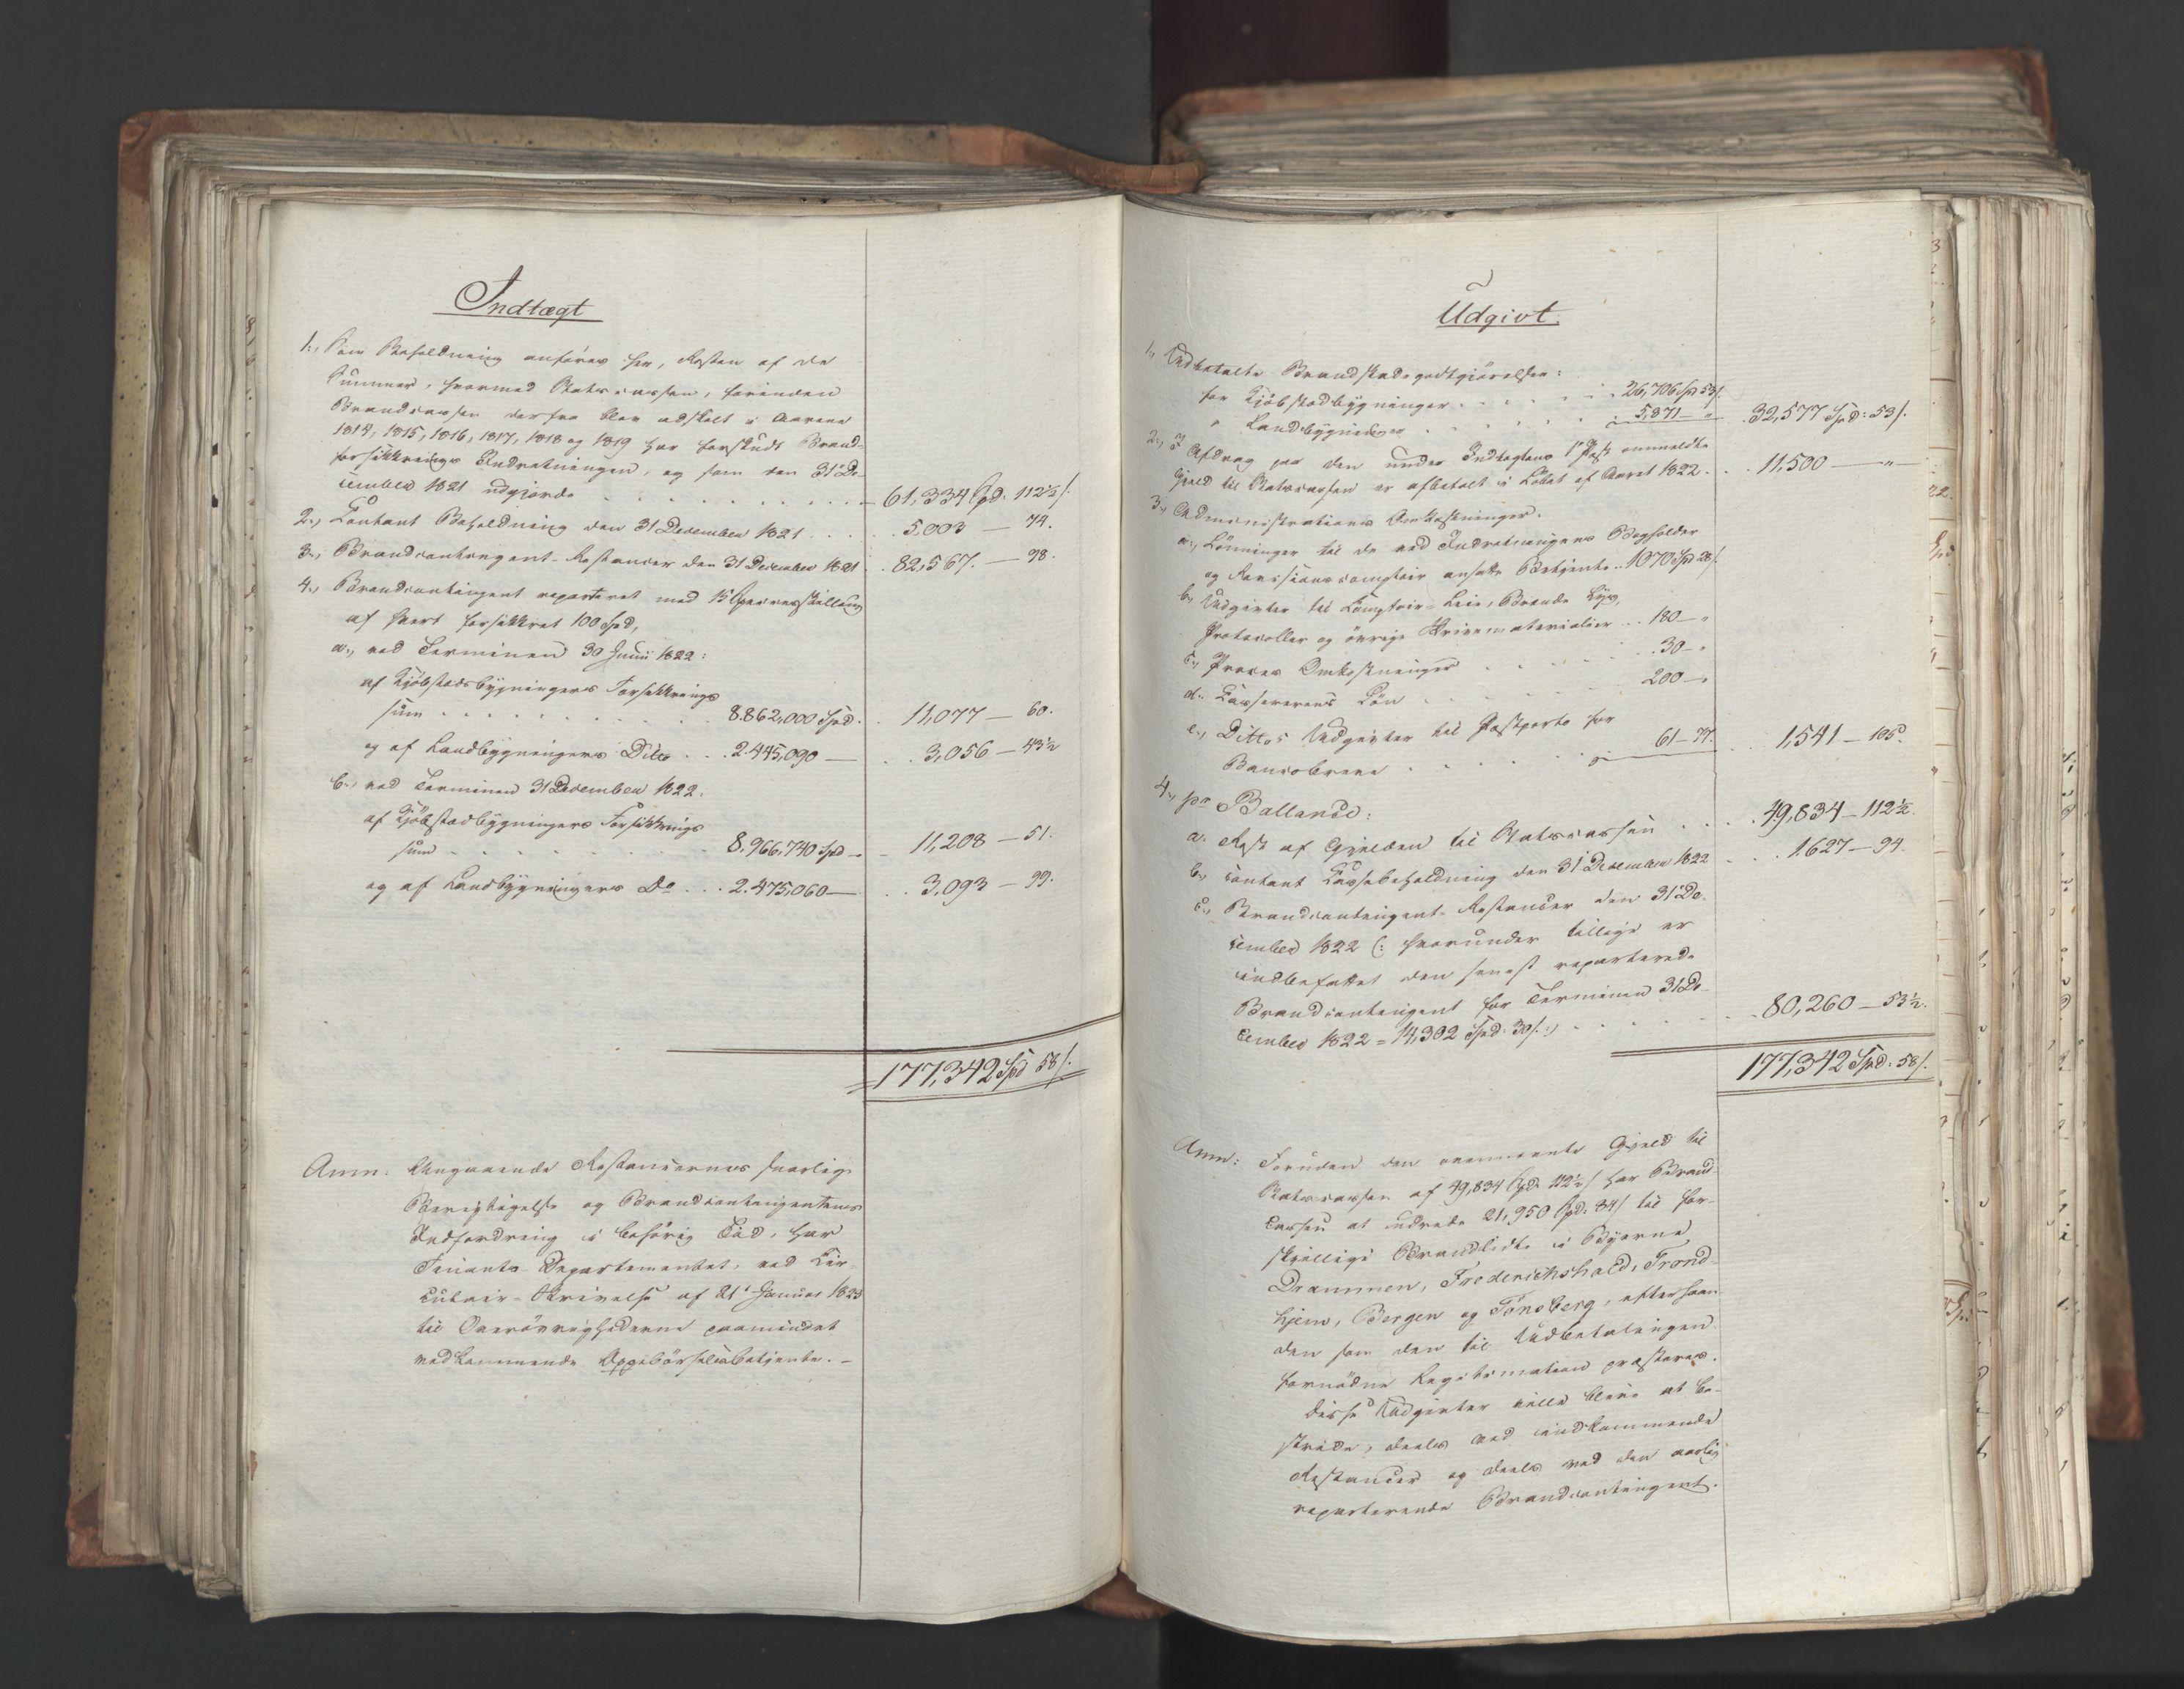 Indtægt
1., Som Beholdning anføres her, Resten af de
Summer, hvormed Statscassen, forinden
Brandcassen derfra blev adskilt i Aarene
1814, 1815, 1816, 1817, 1818 og 1819 har forskudt Brand-
forsikkrings Indretningen, og som den 31 De-
cember 1821 udgjorde . . . . . . . . . . 61,334 Spd. 112½ ß.
2., Contant Beholdning den 31 December 1821 . . . . . 5,003 — 74.
3., Brandcontingent-Restancer den 31 December 1821 . . 82,567. — 98.
4., Brandcontingent reparteret med 15 Species skilling
af hvert forsikkret 100 Spd,
a., ved Terminen 30 Junii 1822:
af Kjøbstædbygningers Forsikkrings
sum . . . . . . . . . . 8.862,000 Spd. . 11,077 — 60.
og af Landbygningers Dito . . . 2.445,090 — . . 3,056 — 43½
b., ved Terminen 31 December 1822.
af Kjöbstædbygningers Forsikkrings
sum . . . . . . . . . . 8,966,740 Spd — 11,208 — 51.
og af Landbygningers Do . . . 2.475,060 — . . 3,093 — 99.
177,342 Spd 58 ß.
Anm: Angaaende Restancernes snarlige
Berigtigelse og Brandcontingentens
Indfordring i behörig Tid, har
Finants-Departementet, ved Cir-
culair-Skrivelse af 21 Januar 1823
til Overøvrighederne paamindet
vedkommende Oppebörselsbetjente. —
Udgivt.
1., Udbetalte Brandskadegodtgjörelser:
for Kjöbstadbygninger . . . . . . 26,706 Sp 53 ß.
" Landbygninger . . . . . . 5,871 — " . 32,577 Spd: 53 ß.
2., I Afdrag paa den under Indtægtens 1ste Post anmeldte
Gjeld til Statscassen er afbetalt i Löbet af Aaret 1822 . . . 11,500 — " —
3., Administrations Omkostninger.
a., Lönninger til de ved Indretningens Bogholder
og Revisionscomptoir ansatte Betjente . . 1070 Spd 28 ß.
b., Udgivter til Comptoir-Leie, Brænde Lys,
Protocoller og övrige Skrivematerialier . . . 180 — "
c., Proces Omkostninger . . . . . 30 — "
d., Cassererens Lön . . . . . 200 — "
e., Dittos Udgivter til Postporto for
Bancobreve . . . . . . 61 — 77. . . 1,541 — 105.
4., pr Ballance:
a. Rest af Gjælden til Statscassen . . . . 49,834 — 112½.
b., contant Cassebeholdning den 31 December 1822 . . . 1.627 — 94.
c., Brandcontingent-Restancer den 31 De-
cember 1822 (: hvorunder tillige er
indbefattet den senest reparterede
Brandcontingent for Terminen 31 De-
cember 1822 = 14,302 Spd. 30 ß. :) . . . . . . 80,260 — 53½.
177,342 Spd: 58 ß.
Anm: Foruden den ovennævnte Gjeld til
Statscassen af 49,834 Spd. 112½ ß har Brand-
cassen at udrede 21,950 Spd. 84 ß til for-
skjellige Brandlidte i Byerne
Drammen, Frederichshald, Trond-
hjem, Bergen og Tønsberg, efterhaan-
den som den til Udbetalingen
fornödne Legitimation præsteres.
Disse Udgivter ville blive at be-
stride, deels ved indkommende
Restancer og deels ved den aarlig
reparterende Brandcontingent.